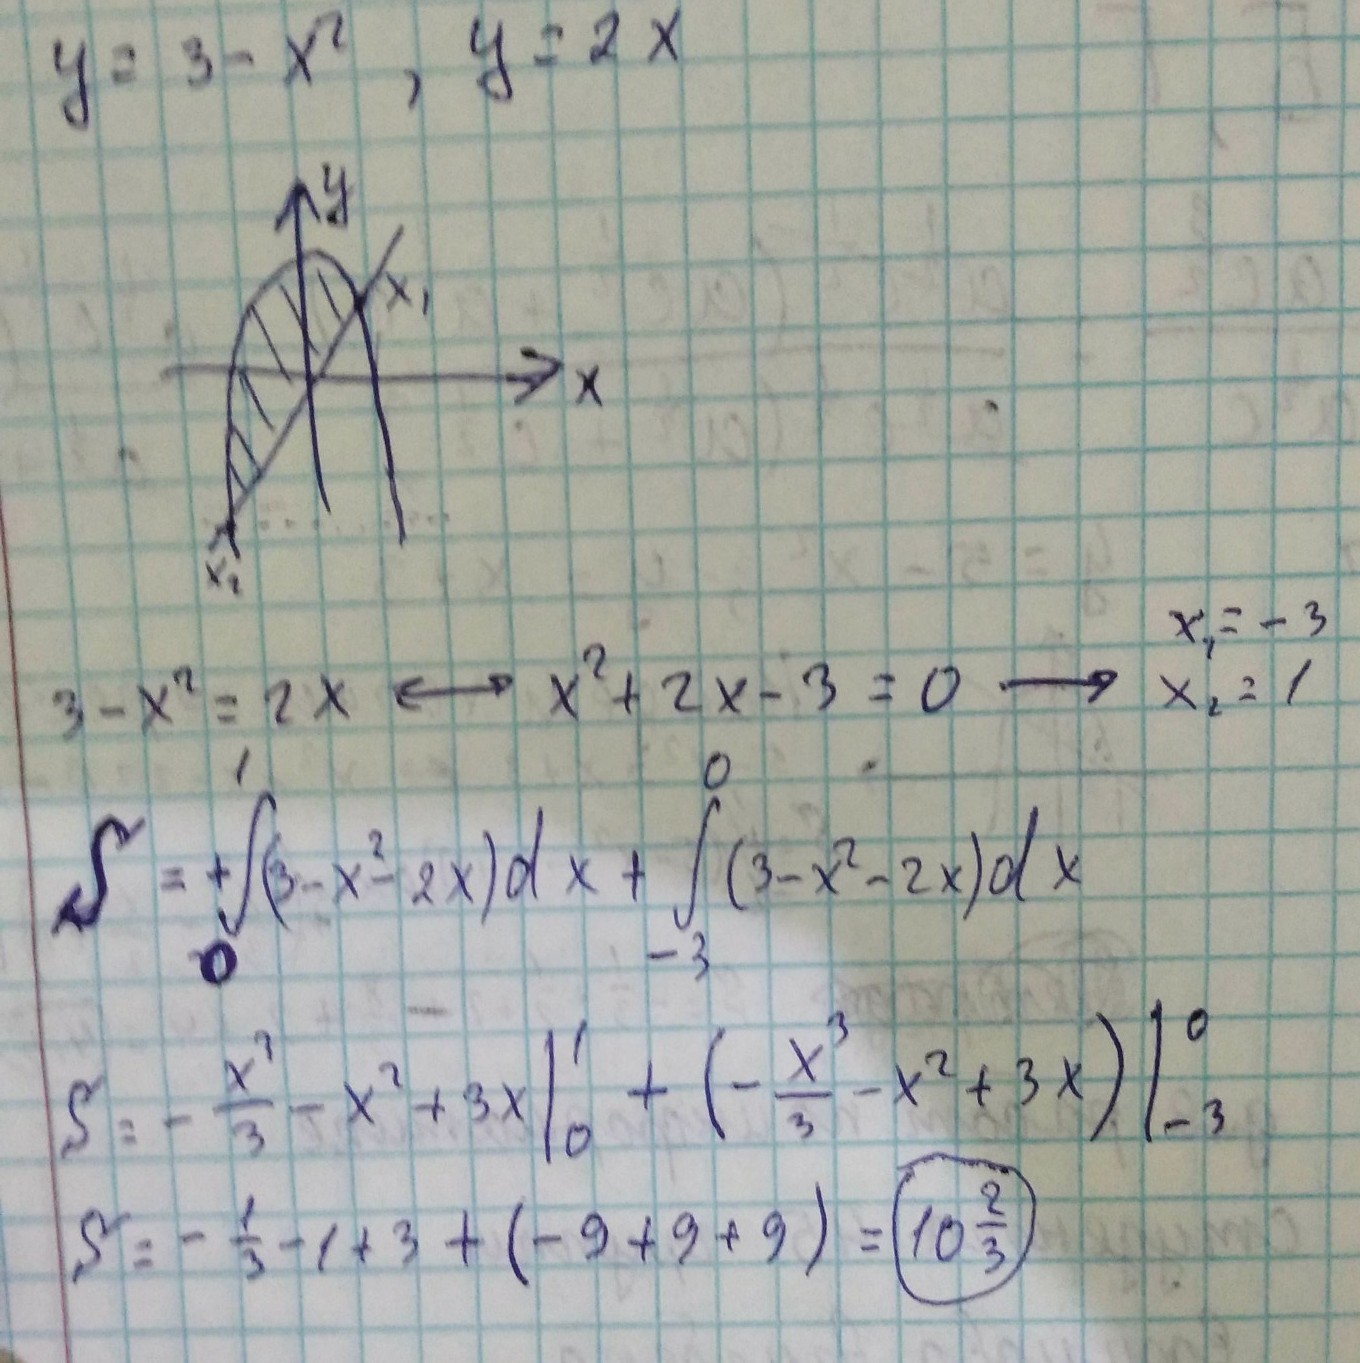 y = 3 - x², y = 2x
y
x₁
x
x₂
3 - x² = 2x ⟷ x² + 2x - 3 = 0 ⟶ x₁ = -3
x₂ = 1
S = +∫₀¹(3 - x² - 2x)dx + ∫₋₃⁰(3 - x² - 2x)dx
S = -x³/3 - x² + 3x|₀¹ + (-x³/3 - x² + 3x)|₋₃⁰
S = -1/3 - 1 + 3 + (-9 + 9 + 9) = 10 2/3